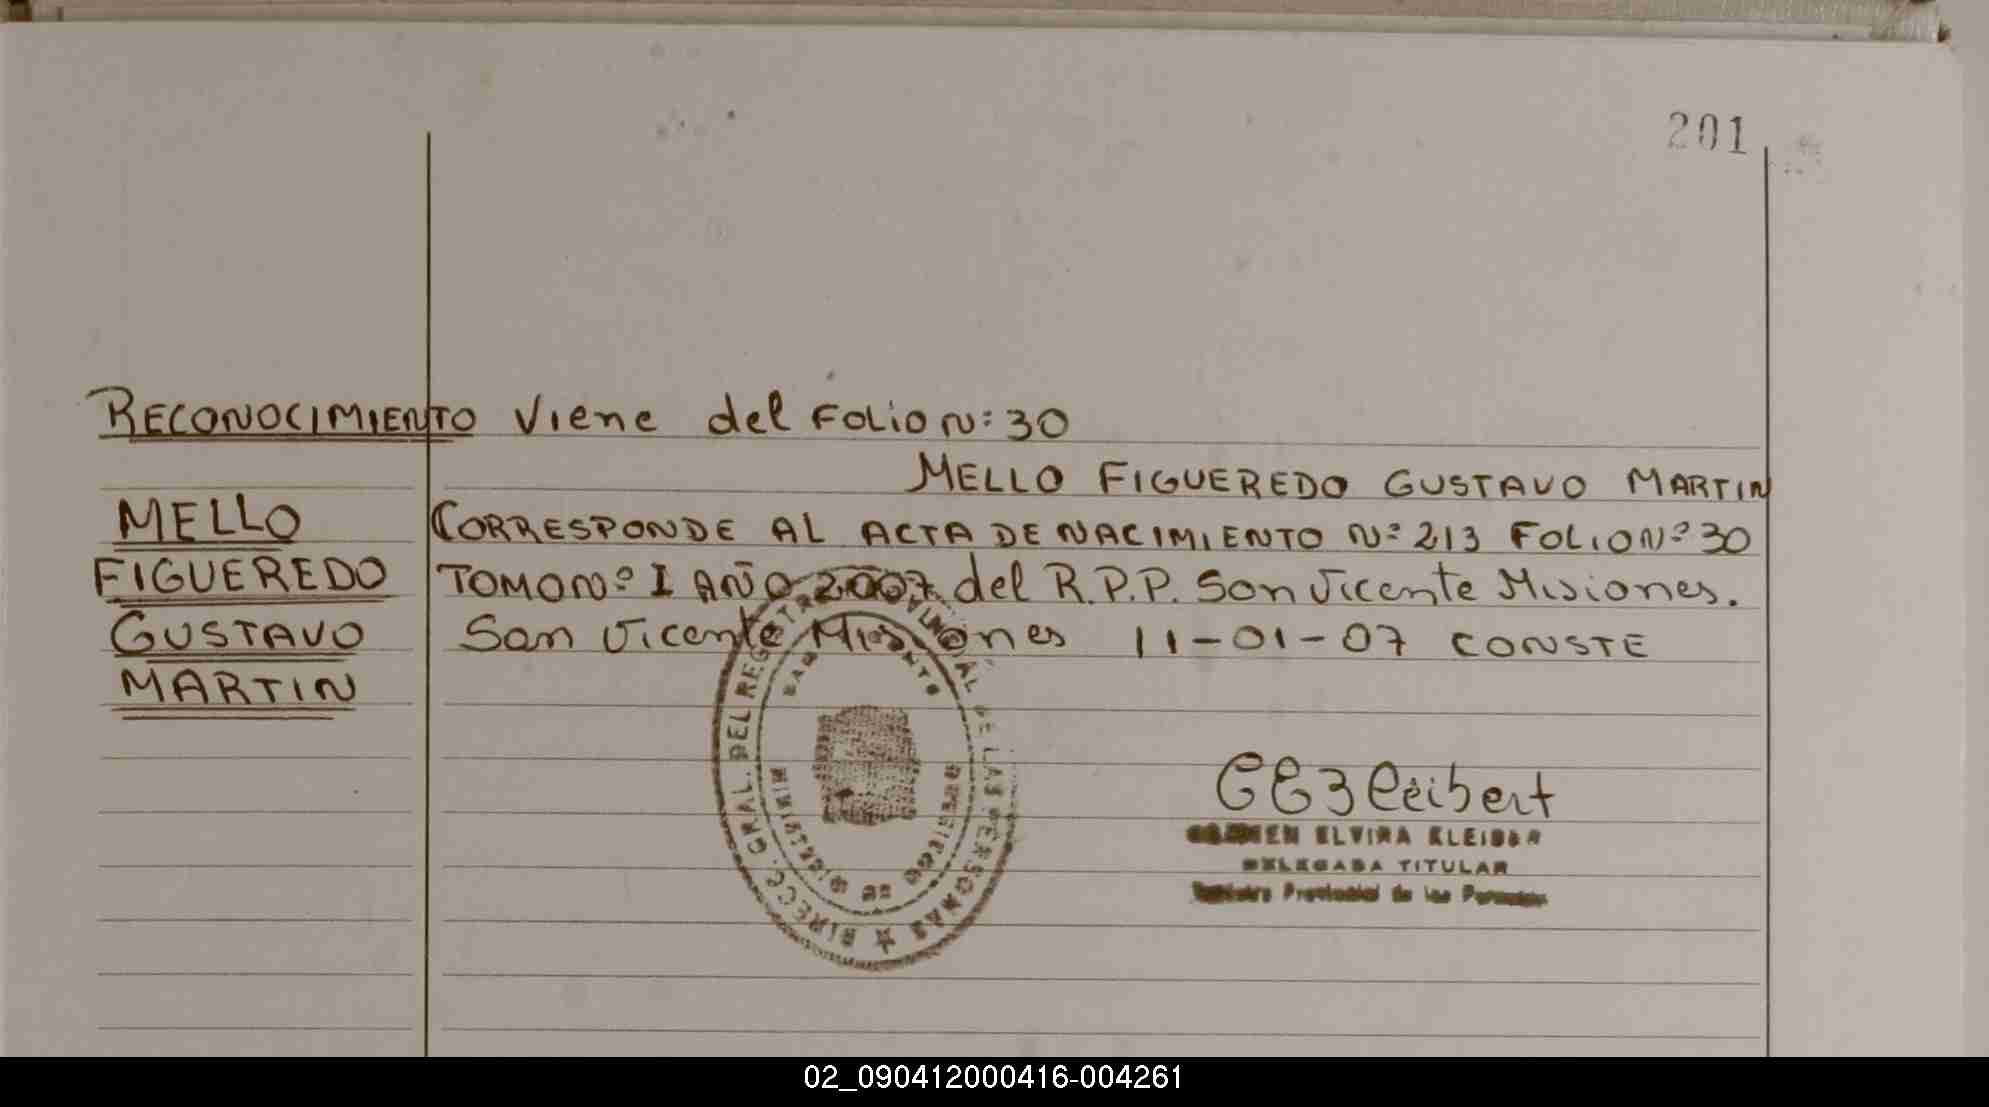 201
RECONOCIMIENTO Viene del Folio N: 30
MELLO FIGUEREDO GUSTAVO MARTIN
MELLO
FIGUEREDO
GUSTAVO
MARTIN
CORRESPONDE AL ACTA DE NACIMIENTO Nº 213 FOLIO Nº 30
TOMO Nº I AÑO 2007 del R.P.P. San Vicente Misiones.
San Vicente Misiones 11-01-07 CONSTE
DIRECC. GRAL. DEL REGISTRO PROVINCIAL DE LAS PERSONAS
MINISTERIO DE GOBIERNO
ELVIRA
DELEGADA TITULAR
Registro Provincial de las Personas
02_090412000416-004261